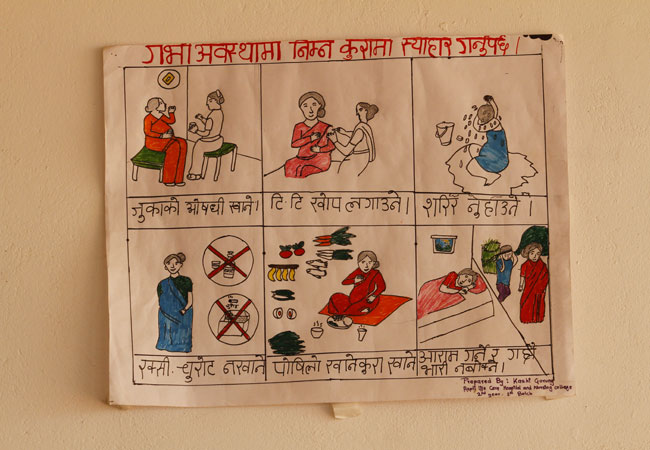 गर्भा अवस्थामा निम्न कुरामा स्याहार गर्नुपर्छ ।
जुकाको औषधी खाने।
टि.टि खोप लगाउने।
शरिर नुहाउने ।
रक्सी. चुरोट नखाने
पोषिलो खानेकुरा खाने
आराम गर्ने र गह्रौ
भारी नबोक्ने।
Prepared By: Kabit Gurung
Care Hospital and Nursing college
2nd year. Batch